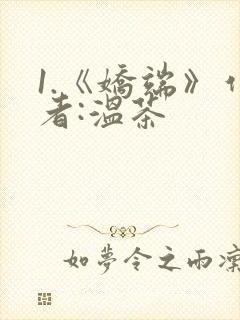 1.《嬌端》
者:溫茶
如夢令之雨